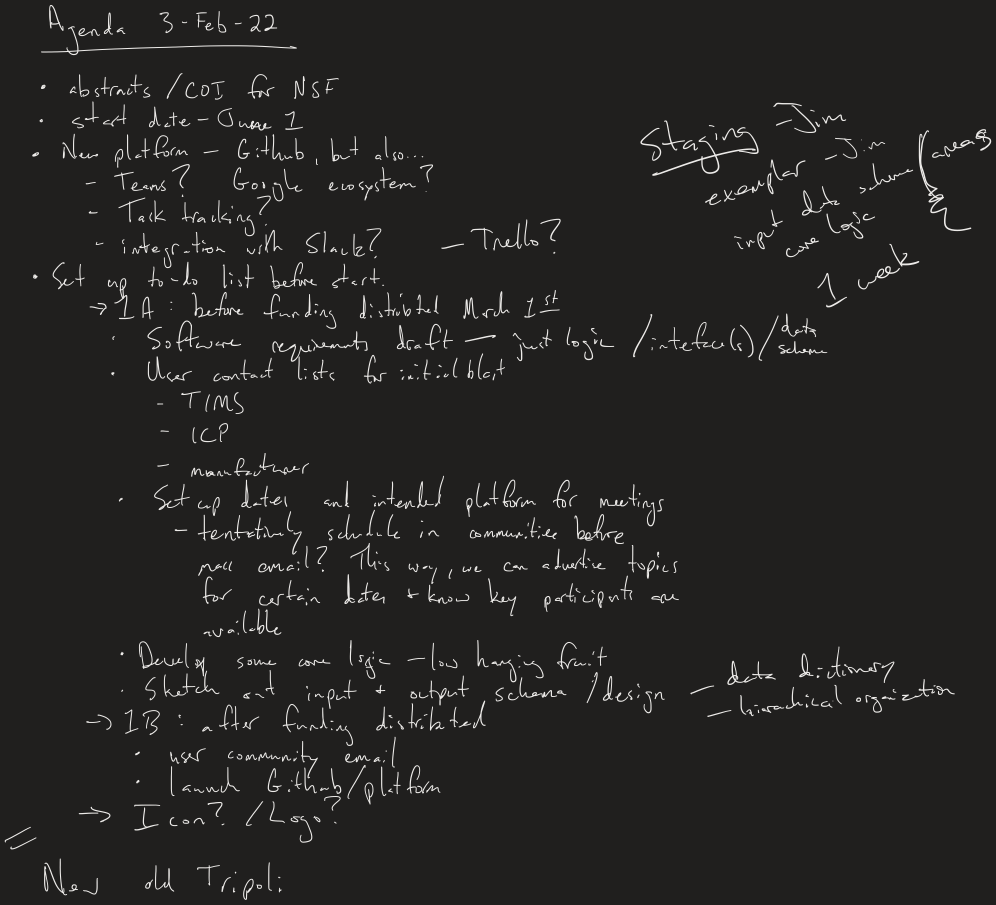 Agenda 3-Feb-22
• abstracts /COI for NSF
• start date - June 1
• New platform - Github, but also...
- Teams? Google ecosystem?
- Task tracking?
- integration with Slack? - Trello?
• Set up to-do list before start.
→ 1A: before funding distributed March 1st
• Software requirements draft - just logic /interface(s)/data schema
• User contact lists for initial blast
- TIMS
- ICP
- manufacturer
• Set up dates and intended platform for meetings
- tentatively schedule in communities before
mass email? This way, we can advertise topics
for certain dates + know key participants are
available
• Develop some core logic - low hanging fruit
• Sketch out input + output schema /design - data dictionary
- hierarchical organization
→ 1B: after funding distributed
• user community email
• launch Github/platform
→ Icon? /Logo?
New old Tripoli
Staging - Jim
exemplar - Jim
input data schema
core logic
areas
1 week